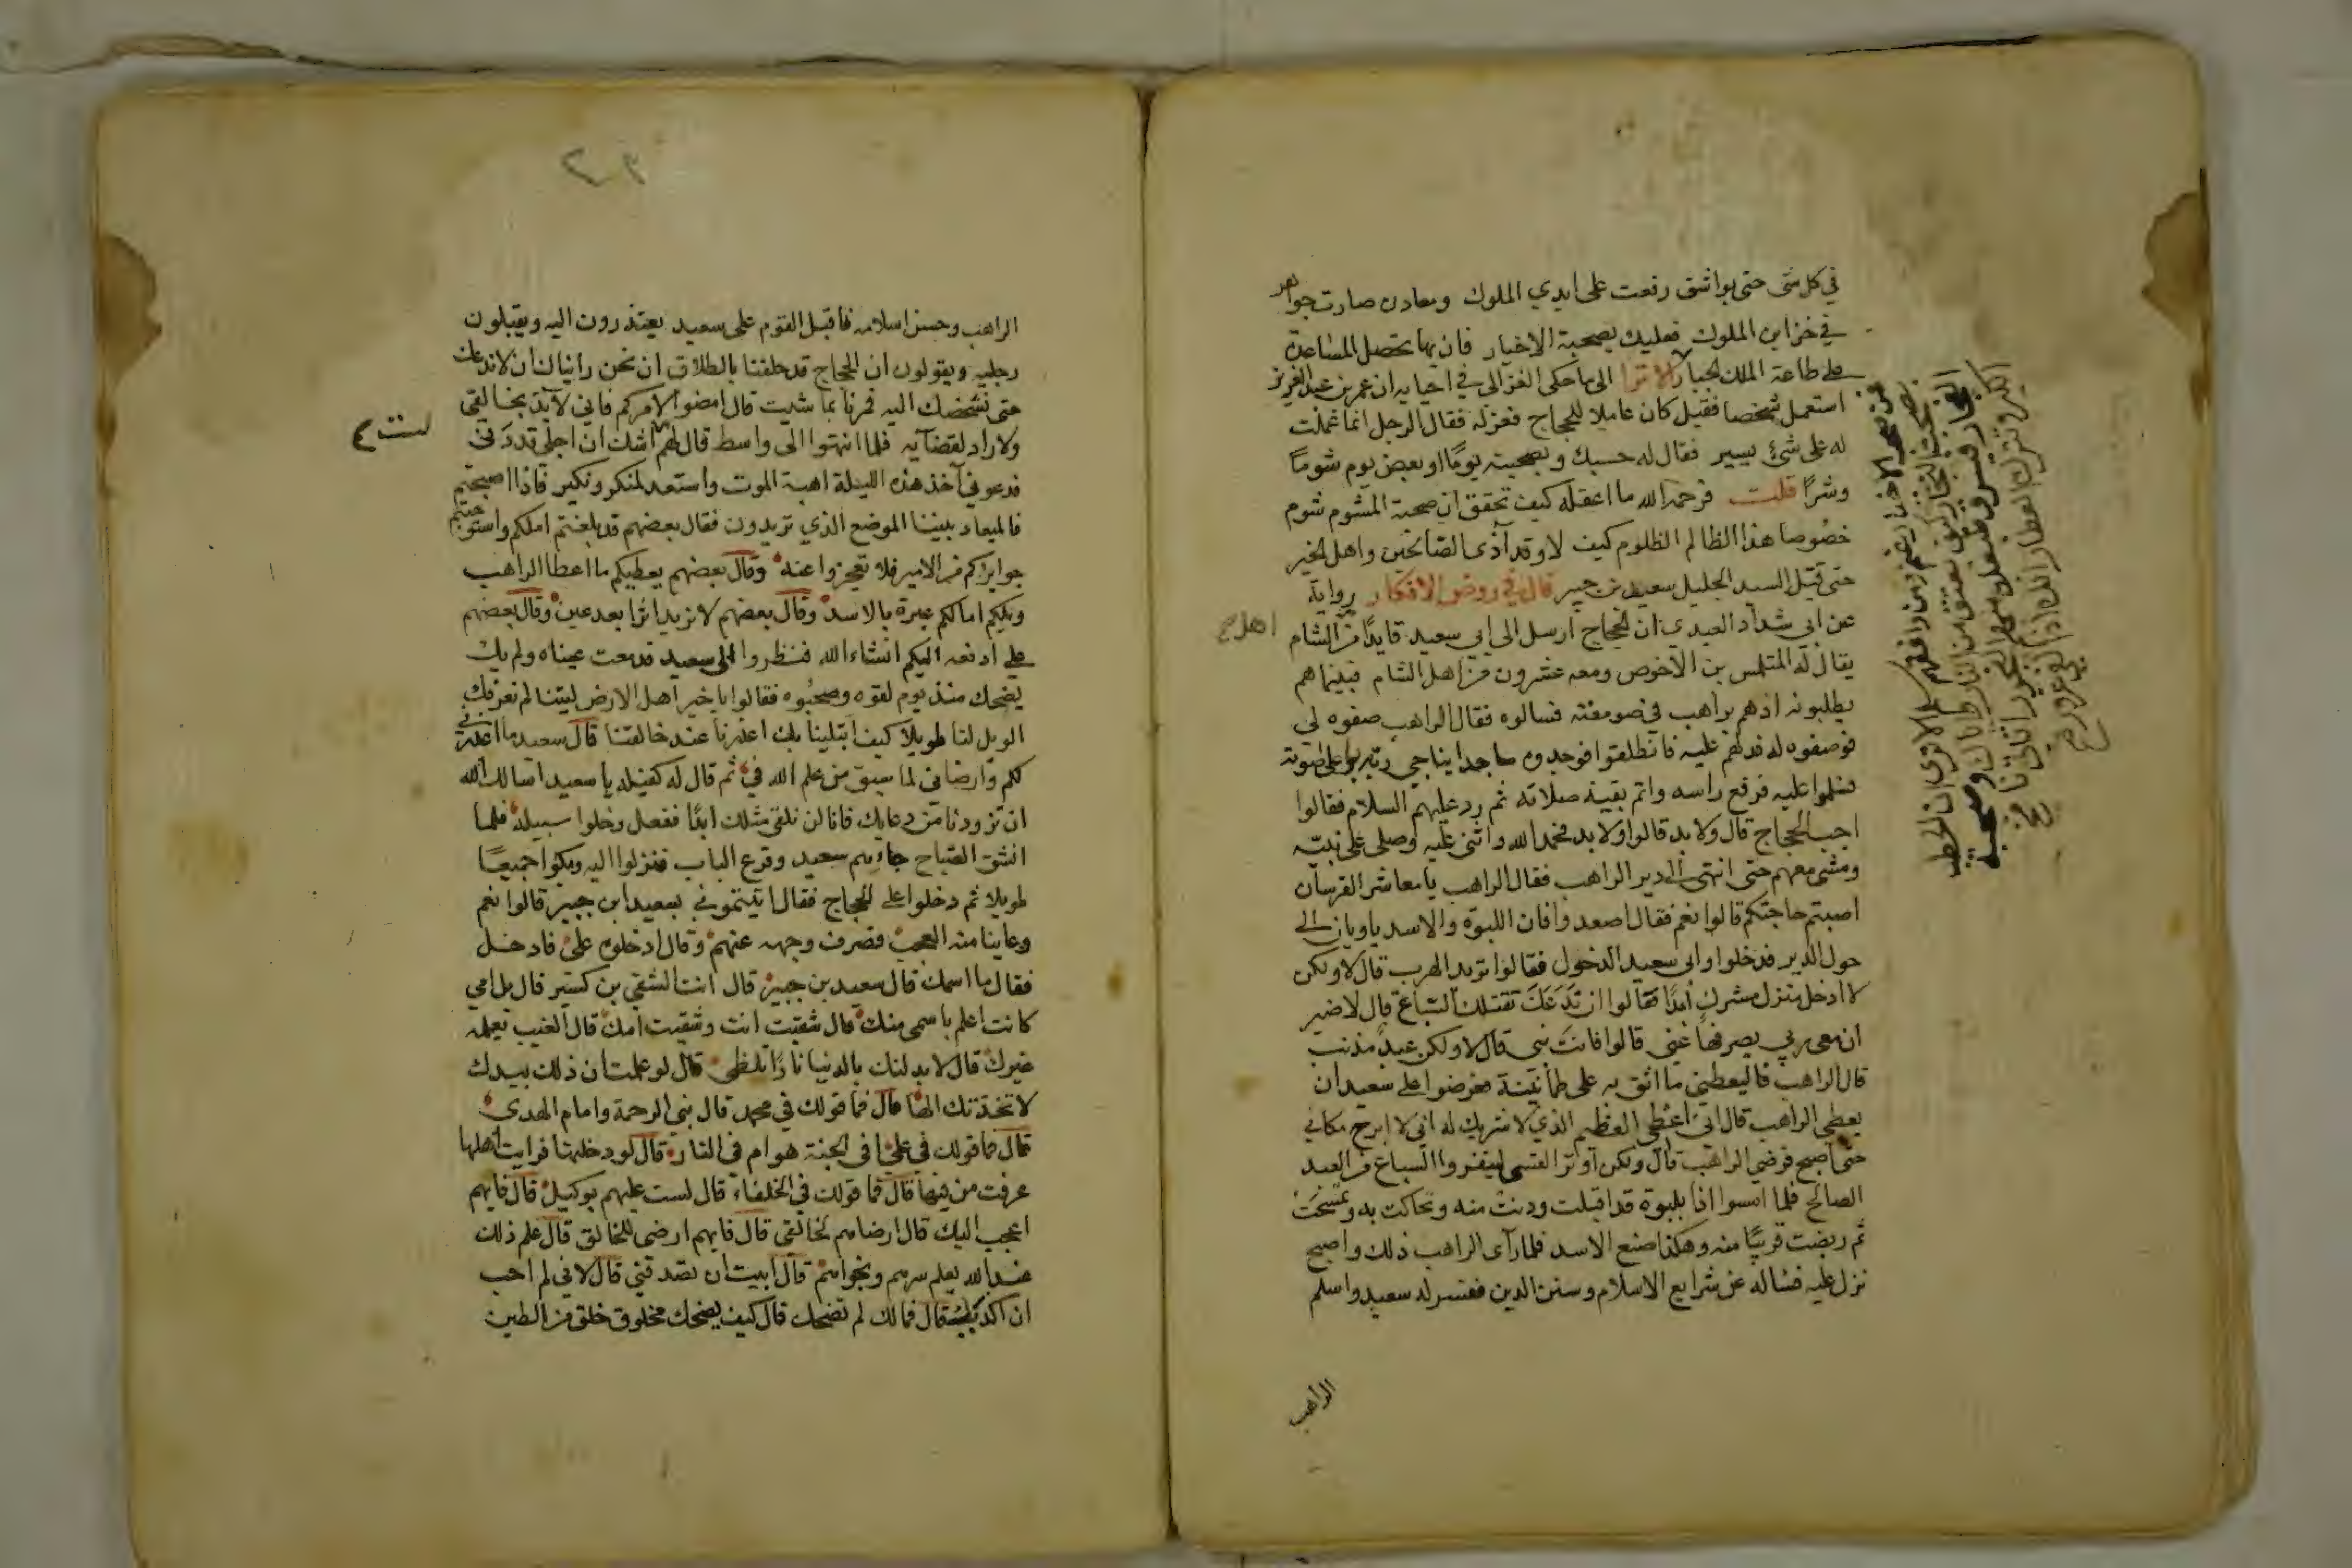 في كل شئ حتى بواشق رفعت على ايدي الملوك ومعادن صارت جواهر
في خزاين الملوك فعليك بصحبة الاخيار فان بها تحصل المساعدة
على طاعة الملك الجبار الا ترا الى ما حكى الغزالى في احيايه ان عمر بن عبد العزيز
استعمل شخصا فقيل كان عاملا للحجاج فعزله فقال الرجل انما عملت
له على شئ يسير فقال له حسبك وبصحبته يومًا او بعض يوم شومًا
وشرًا قلت فرحمه الله ما اعقله كيف تحقق ان صحبة المشوم شوم
خصُوصا هذا الظالم الظلوم كيف لا وقد آذى الصالحين واهل الخير
حتى قتل السيد الجليل سعيد بن جبير قال في روض الافكار رواية
عن ابي شداد العبدي ان الحجاج أرسل الى ابي سعيد قايدًا من الشام
اهل صح
يقال له المتلمس بن الاخوص ومعه عشرون من اهل الشام فبينما هم
يطلبونه اذ هم براهب في صومعته فسالوه فقال الراهب صفوه لى
فوصفوه له فدلهم عليه فانطلقوا فوجدوه ساجدا يناجي ربه باعلى صوته
فسلموا عليه فرفع راسه واتم بقية صلاته ثم رد عليهم السلام فقالوا
اجب الحجاج قال ولا بد قالوا ولا بد فحمد الله واثنى عليه وصلى على نبيّه
ومشى معهم حتى انتهى الى دير الراهب فقال الراهب يا معاشر الفرسان
اصبتم حاجتكم قالوا نعم فقال اصعدوا فان اللبوة والاسد ياويان الى
حول الدير فدخلوا وابى سعيد الدخول فقالوا تريد الهرب قال لا ولكن
لا ادخل منزل مشرك أبدًا فقالوا ان نَدَعَكَ تقتلك السّباع قال لا ضير
ان معي ربي يصرفها عني قالوا فانت نبي قال لا ولكن عبدٌ مذنب
قال الراهب فاليعطيني ما اثق به على طمأنينة فعرضوا على سعيد ان
يعطى الراهب قال انى اعطى العظيم الذي لا شريك له أنى لا ابرح مكاني
حتى أصبح فرضي الراهب قال ولكن أوتروا القسى لينفروا السباع من العبد
الصالح فلما امسوا اذا بلبوة قد اقبلت ودنت منه وتحاكت به وتمسّحَتْ
ثم ربضت قريبًا منه وهكذا صنع الاسد فلما رآى الراهب ذلك واصبح
نزل عليه فساله عن شرايع الاسلام وسنن الدين ففسر له سعيد واسلم
الراهب
الراهب وحسن اسلامه فأقبل القوم على سعيد يعتذرون اليه ويقبلون
رجليه ويقولون ان الحجاج قد حلفنا بالطلاق ان نحن رايناك ان لا ندعك
حتى نشخصك اليه فمرنا بما شيت قال امضوا لامركم فاني لآيذ بخالقي
ولا راد لقضآيه فلما انتهوا الى واسط قال لهم أشك ان اجلي قد دَنى
فدعوني آخذ هذه الليلة اهبة الموت واستعد لمنكر ونكير فاذا اصبحتم
فالميعاد بيننا الموضع الذي تريدون فقال بعضهم قد بلغتم املكم واستوجبتم
جوايزكم من الامير فلا تعجزوا عنه وقال بعضهم يعطيكم ما اعطا الراهب
ويلكم اما لكم عبرة بالاسد وقال بعضهم لا نريد اثرا بعد عين وقال بعضهم
على ادفعه اليكم انشاء الله فنظروا الى سعيد قد دمعت عيناه ولم يك
يضحك منذ يوم لقوه وصحبُوه فقالوا يا خير اهل الارض ليتنا لم نعرفك
الويل لنا طويلاً كيف ابتلينا بك اعذرنا عند خالقنا قال سعيد ما اعذرني
لكم وارضاني لما سبق من علم الله في ثم قال له كفيله يا سعيد اسالك الله
ان تزودنا من دعايك فانا لن نلقى مثلك ابدًا ففعل وخلوا سبيله فلما
انشق الصّباح جاءهم سعيد وقرع الباب فنزلوا اليه وبكوا جميعًا
طويلا ثم دخلوا على الحجاج فقال اتيتموني بسعيد ابن جبير قالوا نعم
وعاينا منه العجب فصرف وجهه عنهم وقال ادخلوه علىّ فادخل
فقال ما اسمك قال سعيد بن جبير قال انت الشقي بن كسير قال بل امي
كانت اعلم باسمى منك قال شقيت انت وشقيت امك قال الغيب يعلمه
غيرك قال لابدلنك بالدنيا نارًا تلظى قال لو علمت ان ذلك بيدك
لاتخذتك الهًا قال فما قولك في محمد قال نبى الرحمة وامام الهدى
قال فما قولك في علىّ افى الجنة هو ام فى النار قال لو دخلتها فرايت اهلها
عرفت من فيها قال فما قولك في الخلفاء قال لست عليهم بوكيل قال فايهم
اعجب اليك قال ارضاهم لخالقي قال فايهم ارضى للخالق قال علم ذلك
عند الله يعلم سرهم ونجواهم قال ابيت ان تصدقني قال لاني لم احب
ان اكذبك قال فما لك لم تضحك قال كيف يضحك مخلوق خلق من الطين